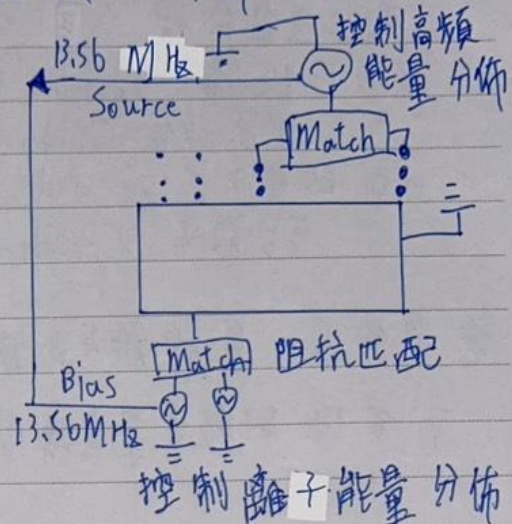 13.56 MHz
Source
控制高頻
能量分佈
Match
Match
阻抗匹配
Bias
13.56MHz
控制離子能量分佈